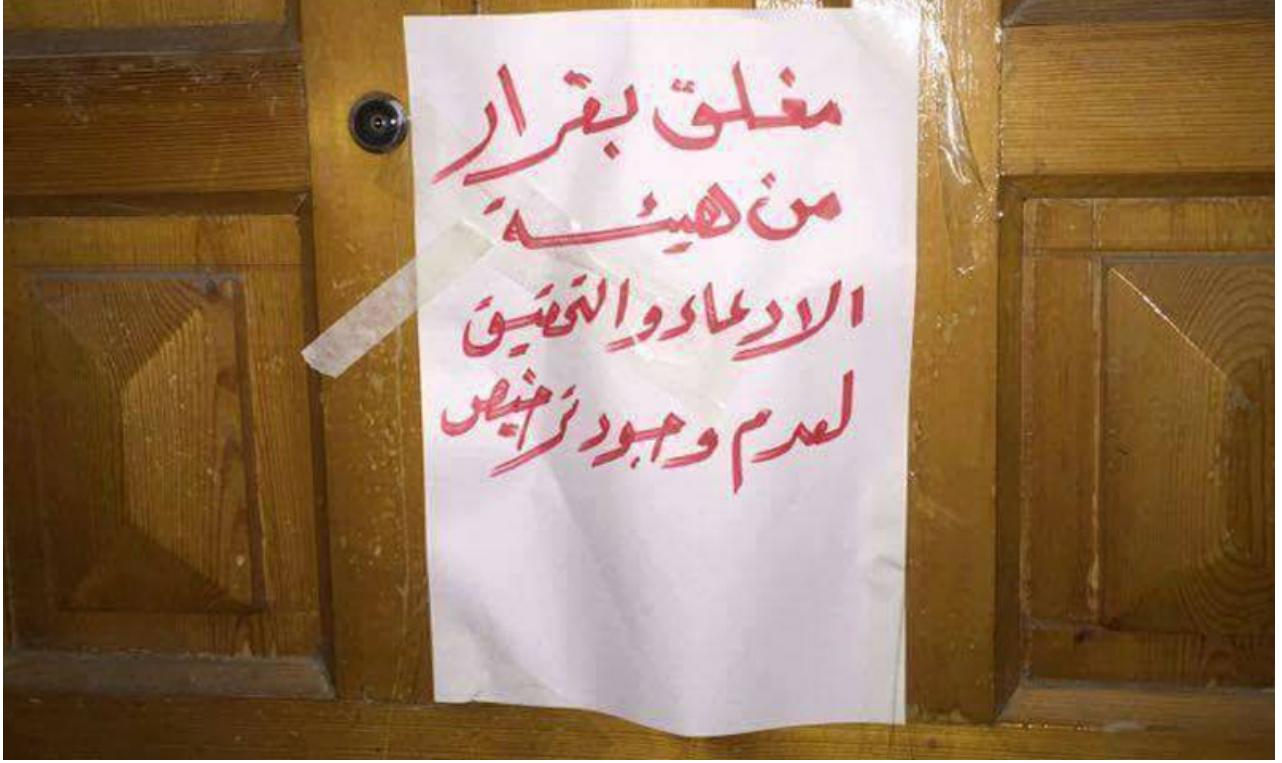 مغلق بقرار
من هيئة
الادعاء والتحقيق
لعدم وجود ترخيص